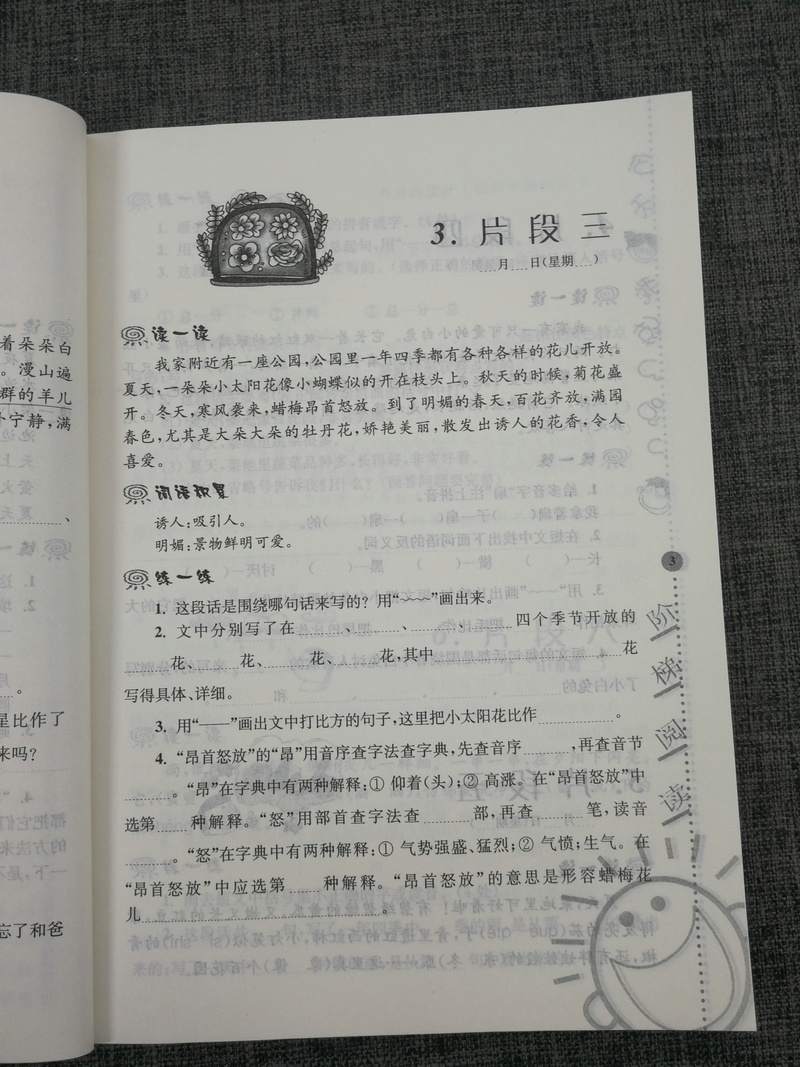 着朵朵白
。漫山遍
群的羊儿
宁静,满
、
。
星比作了
来吗?
忘了和爸
3. 片段三
月 日(星期 )
读一读
我家附近有一座公园,公园里一年四季都有各种各样的花儿开放。
夏天,一朵朵小太阳花像小蝴蝶似的开在枝头上。秋天的时候,菊花盛
开。冬天,寒风袭来,蜡梅昂首怒放。到了明媚的春天,百花齐放,满园
春色,尤其是大朵大朵的牡丹花,娇艳美丽,散发出诱人的花香,令人
喜爱。
词语积累
诱人:吸引人。
明媚:景物鲜明可爱。
练一练
1. 这段话是围绕哪句话来写的?用“~~~”画出来。
2. 文中分别写了在 、 、 、 四个季节开放的
花、 花、 花、 花,其中 花
写得具体、详细。
3. 用“——”画出文中打比方的句子,这里把小太阳花比作 。
4. “昂首怒放”的“昂”用音序查字法查字典,先查音序 ,再查音节
。“昂”在字典中有两种解释:① 仰着(头);② 高涨。在“昂首怒放”中
选第 种解释。“怒”用部首查字法查 部,再查 笔,读音
。“怒”在字典中有两种解释:① 气势强盛、猛烈;② 气愤;生气。在
“昂首怒放”中应选第 种解释。“昂首怒放”的意思是形容蜡梅花
儿 。
3
阶
梯
阅
读